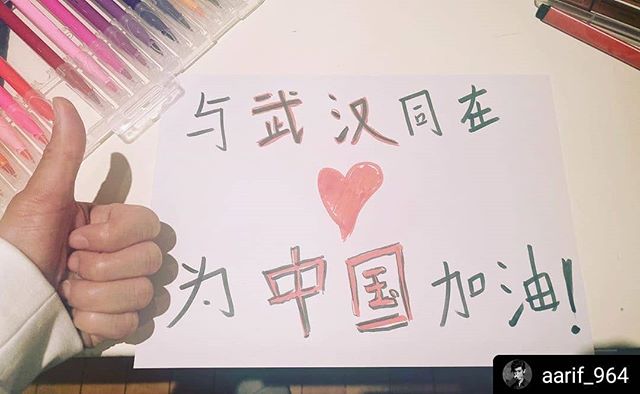 与武汉同在
为中国加油!
aarif_964